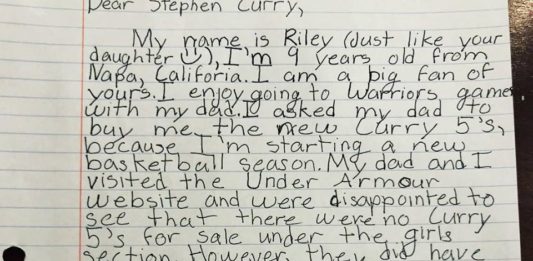 Dear Stephen Curry,
My name is Riley (Just like your
daughter), I'm 9 years old from
Napa, Califoria. I am a big fan of
yours. I enjoy going to Warriors games
with my dad. I asked my dad to
buy me the new Curry 5's,
because I'm starting a new
basketball season. My dad and I
visited the Under Armour
website and were disappointed to
see that there were no Curry
5's for sale under the girls
section. However, they did have